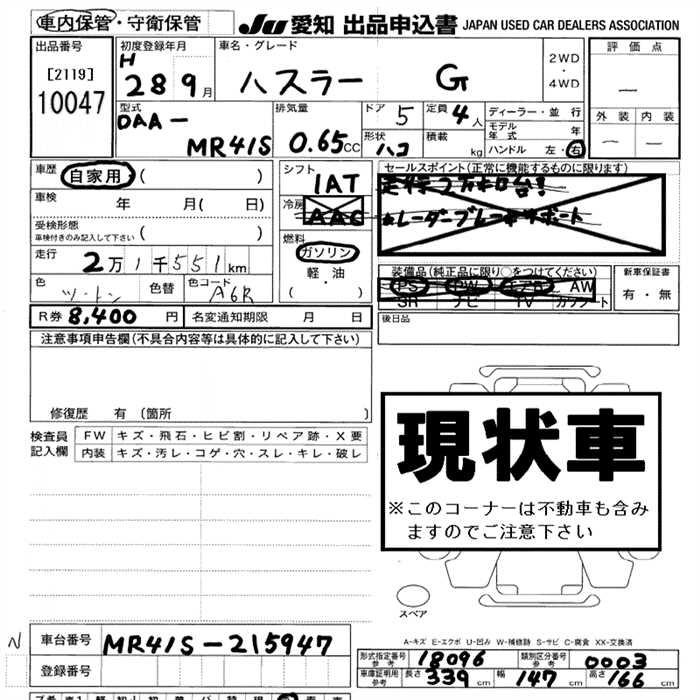 車内保管・守衛保管 JU 愛知 出品申込書 JAPAN USED CAR DEALERS ASSOCIATION
出品番号 初度登録年月 車名・グレード 2WD・4WD 評価点
[2119] H 28 9月 ハスラー G —
10047
型式 排気量 ドア 5 定員 4人 ディーラー・並行 外装 内装
DAA- モデル年式 年 — —
MR41S 0.65CC 形状 ハコ 積載 kg ハンドル 左・右
車歴 自家用 ( ) シフト セールスポイント(正常に機能するものに限ります)
車検 年 月( 日) IAT
冷房 AAC レーダーブレーキサポート
受検形態
車検付きのみ記入して下さい ( ) 燃料
走行 2万1千551km ガソリン 装備品(純正品に限り○をつけてください) 新車保証書
軽・油 PS PW エアB AW 有・無
色 ツートン 色替 色コード A6R ( ・ ) SR ナビ TV カワシート
R券 8,400円 名変通知期限 月 日 後日品
注意事項申告欄(不具合内容等は具体的に記入して下さい)
修復歴 有 (箇所 )
現状車
※このコーナーは不動車も含み
ますのでご注意下さい
検査員記入欄 FW キズ・飛石・ヒビ割・リペア跡・X要
内装 キズ・汚レ・コゲ・穴・スレ・キレ・破レ
スペア
A-キズ E-エクボ U-凹み W-補修跡 S-サビ C-腐食 XX-交換済
N 車台番号 MR41S-215947
型式指定番号 参考 18096 類別区分番号 参考 0003
登録番号 車庫証明用 参考 長さ 339cm 幅 147cm 高さ 166cm